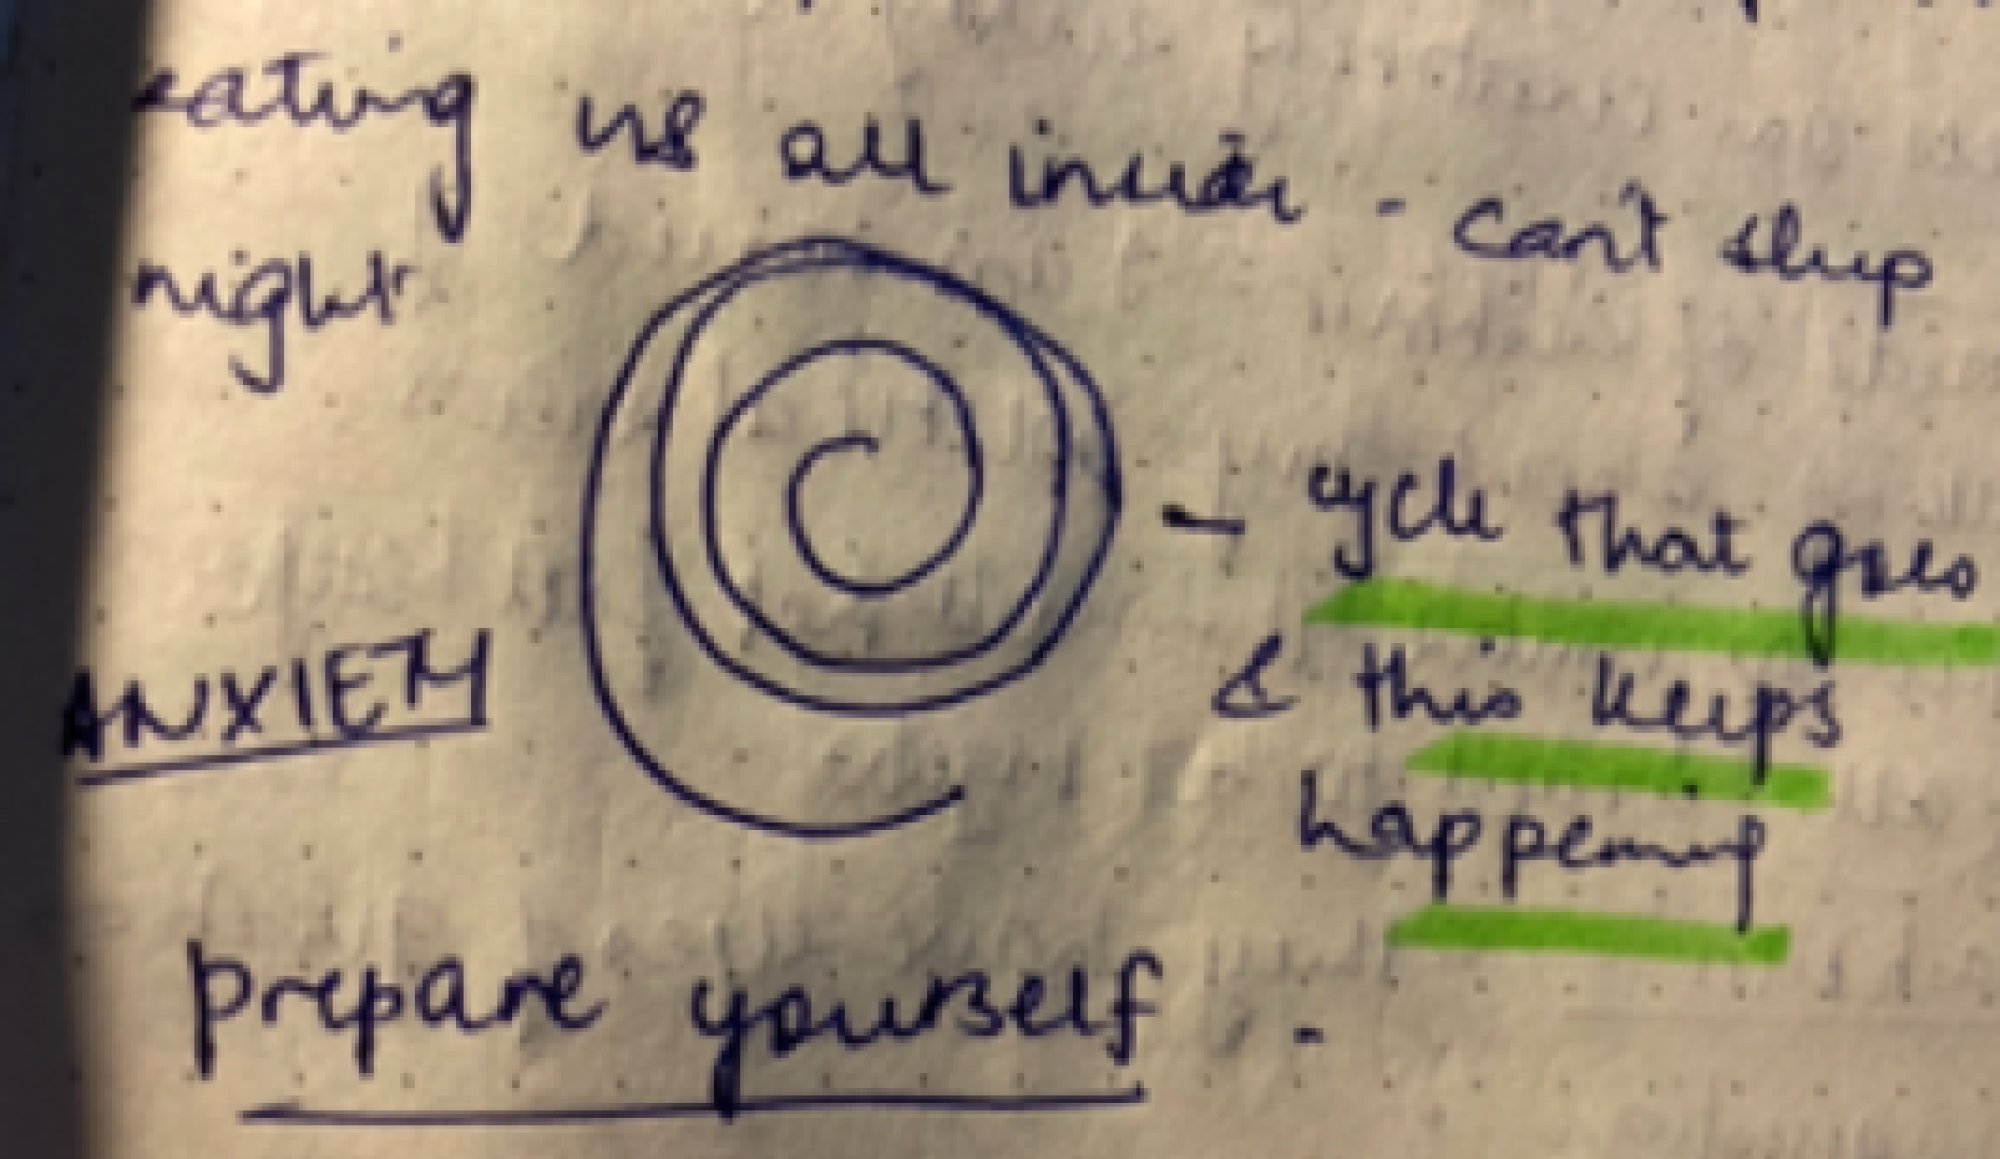 eating us all inside - can't sleep
night
- cycle that goes
& this keeps
happening
ANXIETY
prepare yourself. -